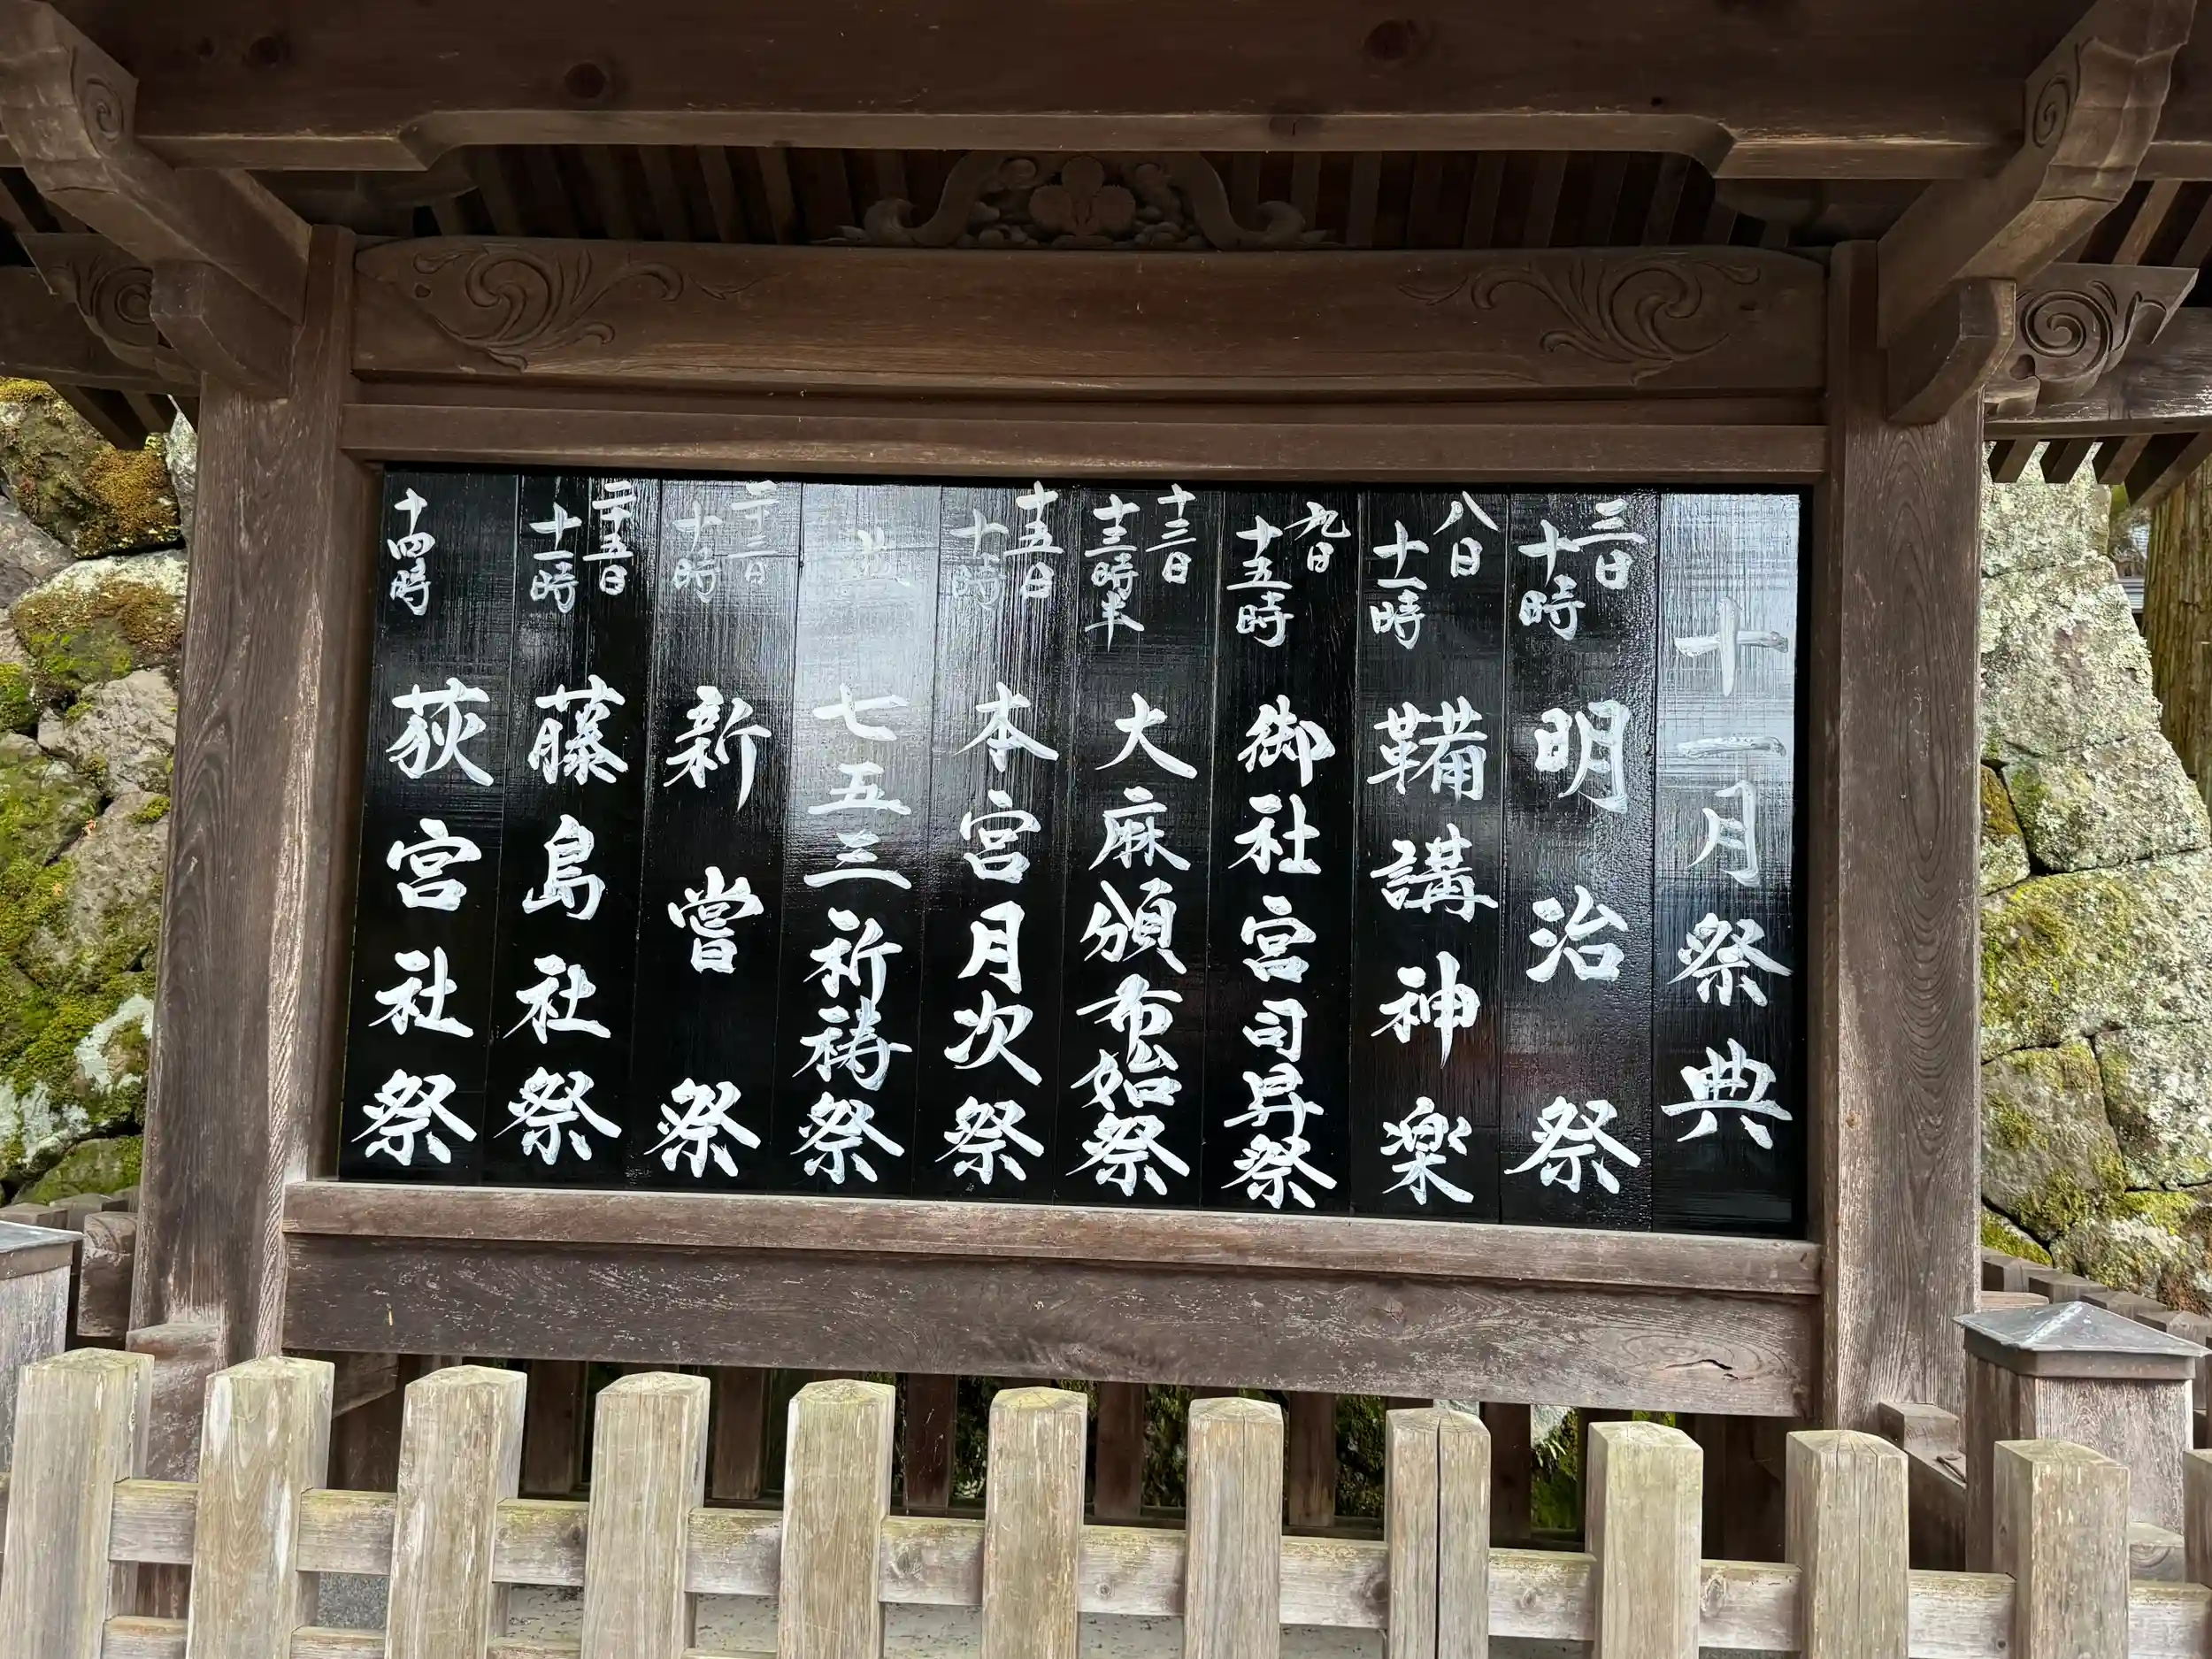 十一月祭典
三日
十時
明治祭
八日
十一時
鞴講神楽
九日
十五時
御社宮司昇祭
十三日
十三時半
大麻頒布始祭
十五日
十時
本宮月次祭
七五三祈祷祭
二十三日
十時
新嘗祭
二十五日
十一時
藤島社祭
十四時
荻宮社祭